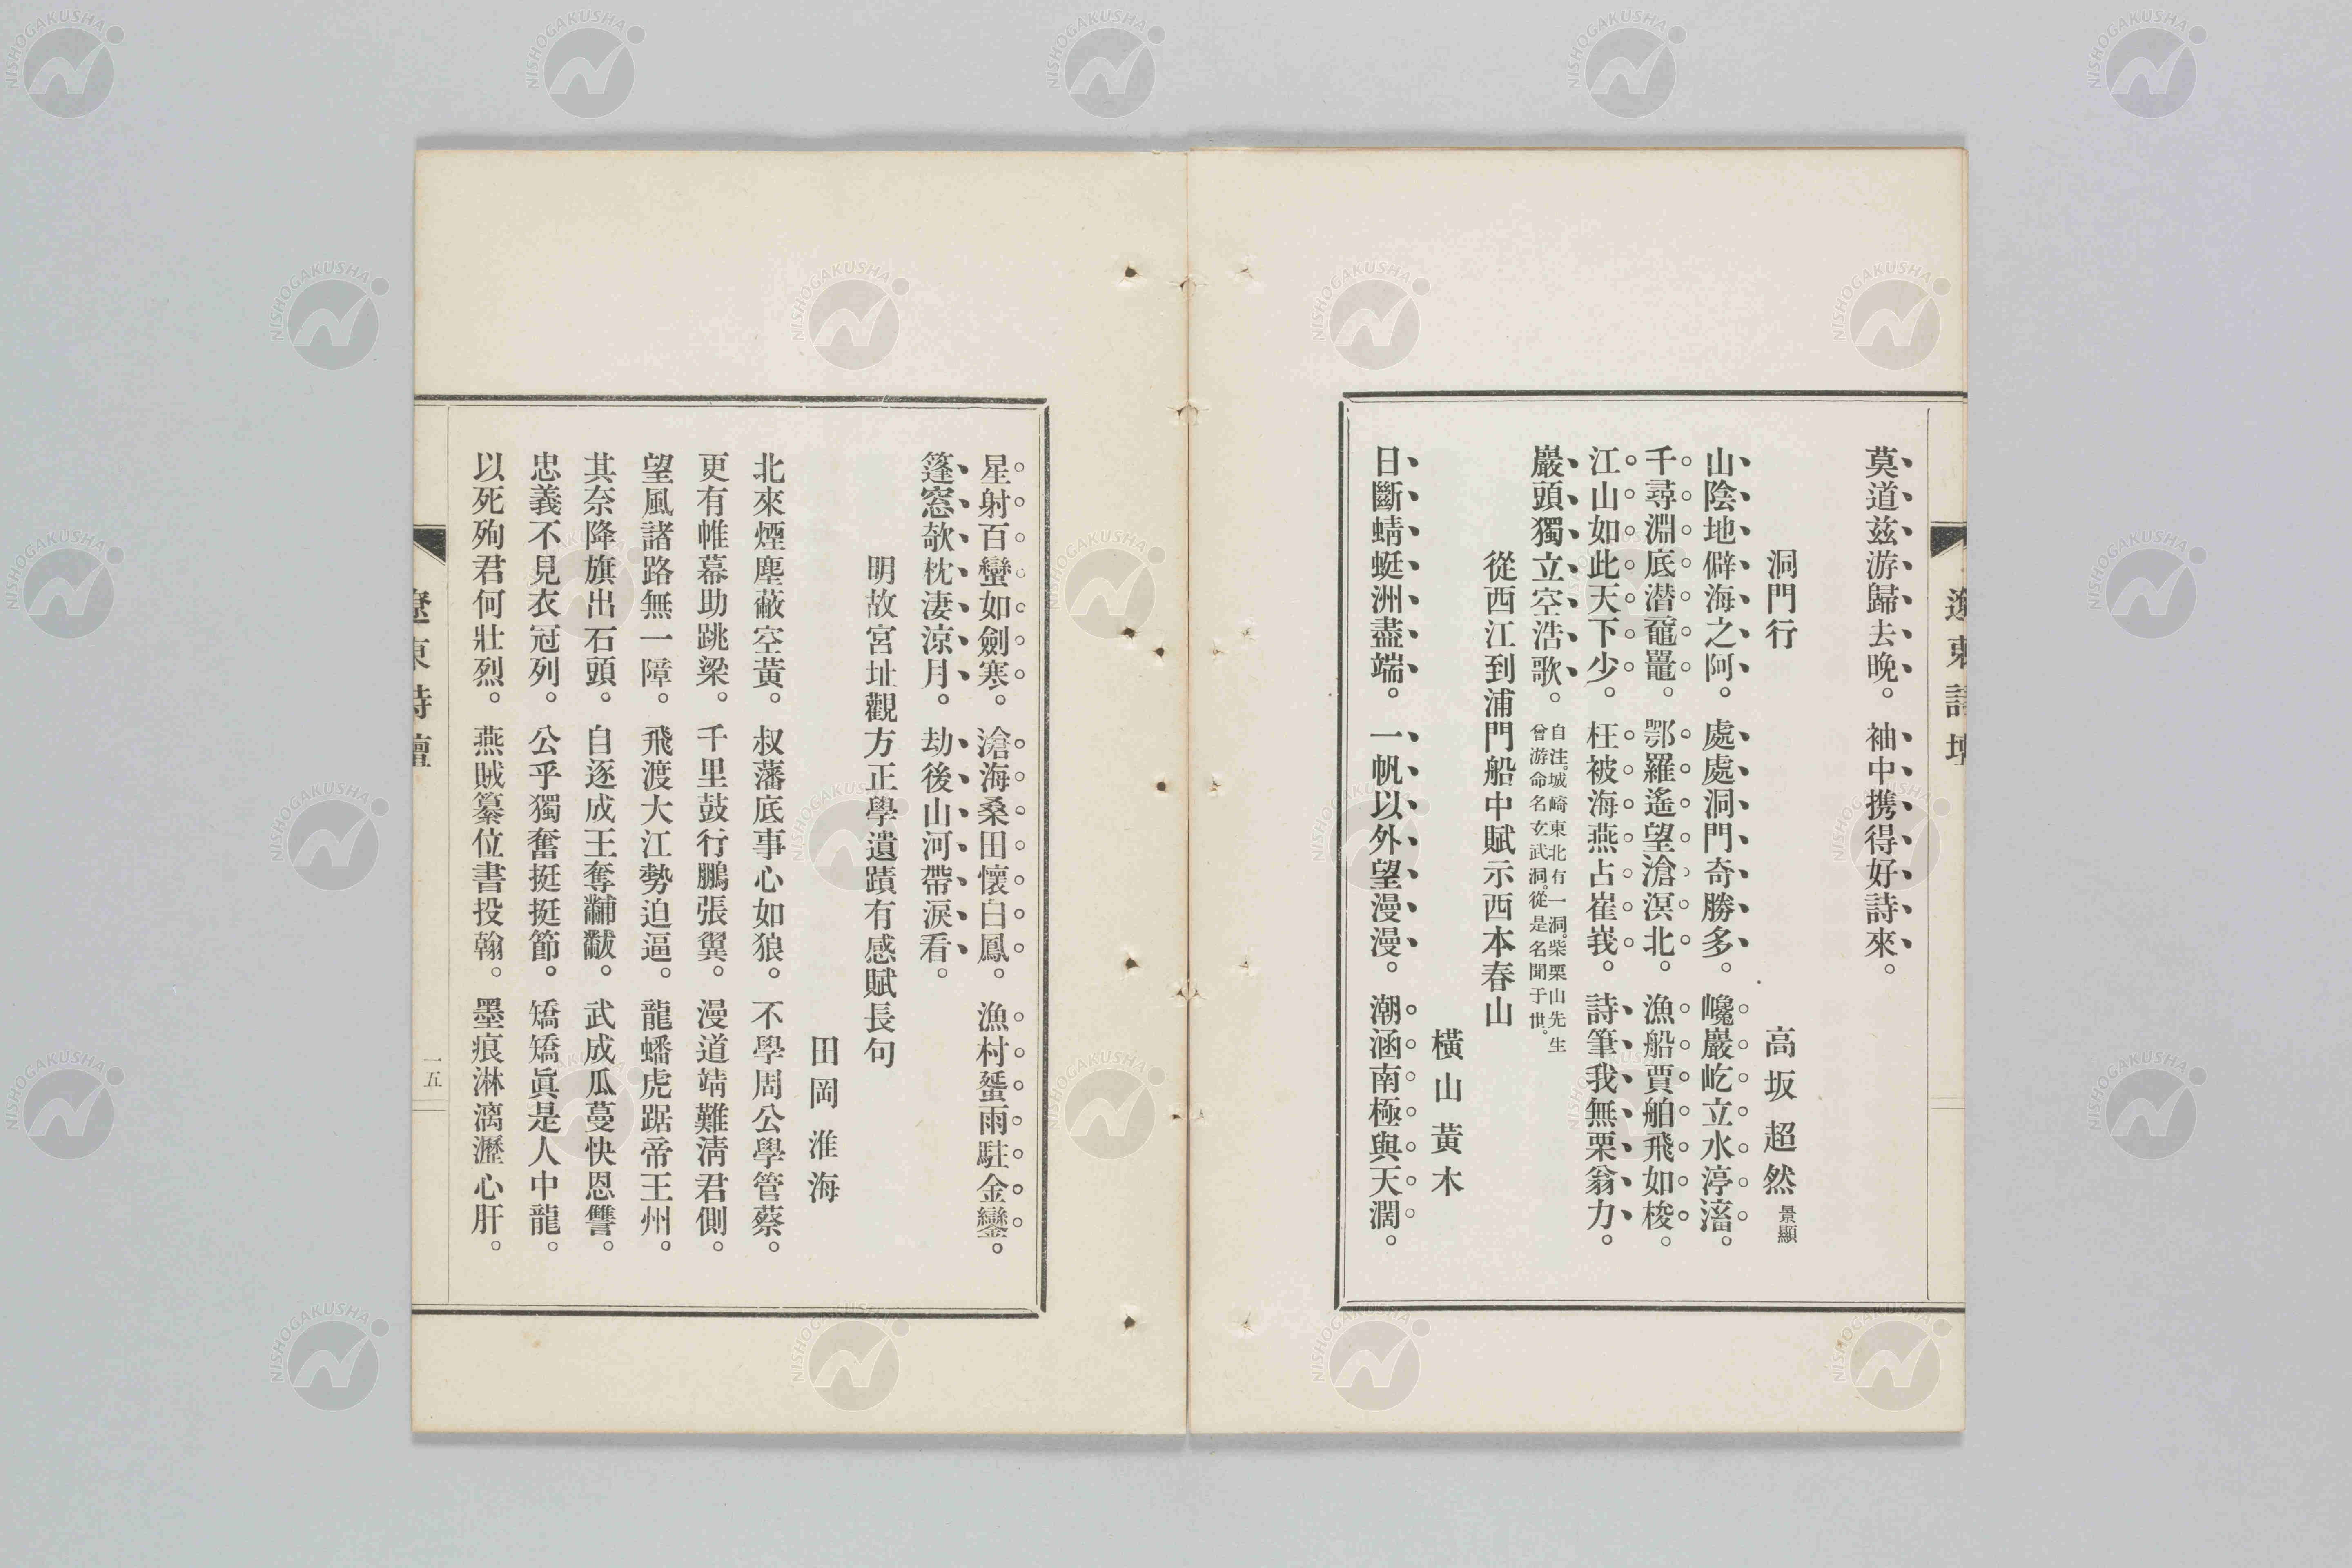 遼東詩壇
莫道兹游歸去晚。袖中携得好詩來。
洞門行
高坂超然景顯
山陰地僻海之阿。處處洞門奇勝多。巉巖屹立水渟滀。
千尋淵底潜黿鼉。鄂羅遙望滄溟北。漁船賈舶飛如梭。
江山如此天下少。枉被海燕占崔嵬。詩筆我無栗翁力。
巖頭獨立空浩歌。自注。城崎東北有一洞。柴栗山先生
曾游命名玄武洞。從是名聞于世。
從西江到浦門船中賦示西本春山
橫山黃木
日斷蜻蜓洲盡端。一帆以外望漫漫。潮涵南極與天濶。
星射百蠻如劍寒。滄海桑田懷白鳳。漁村蜑雨駐金鑾。
篷窓欹枕淒涼月。劫後山河帶淚看。
明故宮址觀方正學遺蹟有感賦長句
田岡淮海
北來煙塵蔽空黃。叔藩底事心如狼。不學周公學管蔡。
更有帷幕助跳梁。千里鼓行鵬張翼。漫道靖難淸君側。
望風諸路無一障。飛渡大江勢迫逼。龍蟠虎踞帝王州。
其奈降旗出石頭。自逐成王奪黼黻。武成瓜蔓快恩讐。
忠義不見衣冠列。公乎獨奮挺挺節。矯矯眞是人中龍。
以死殉君何壯烈。燕賊纂位書投翰。墨痕淋漓瀝心肝。
遼東詩壇
一五